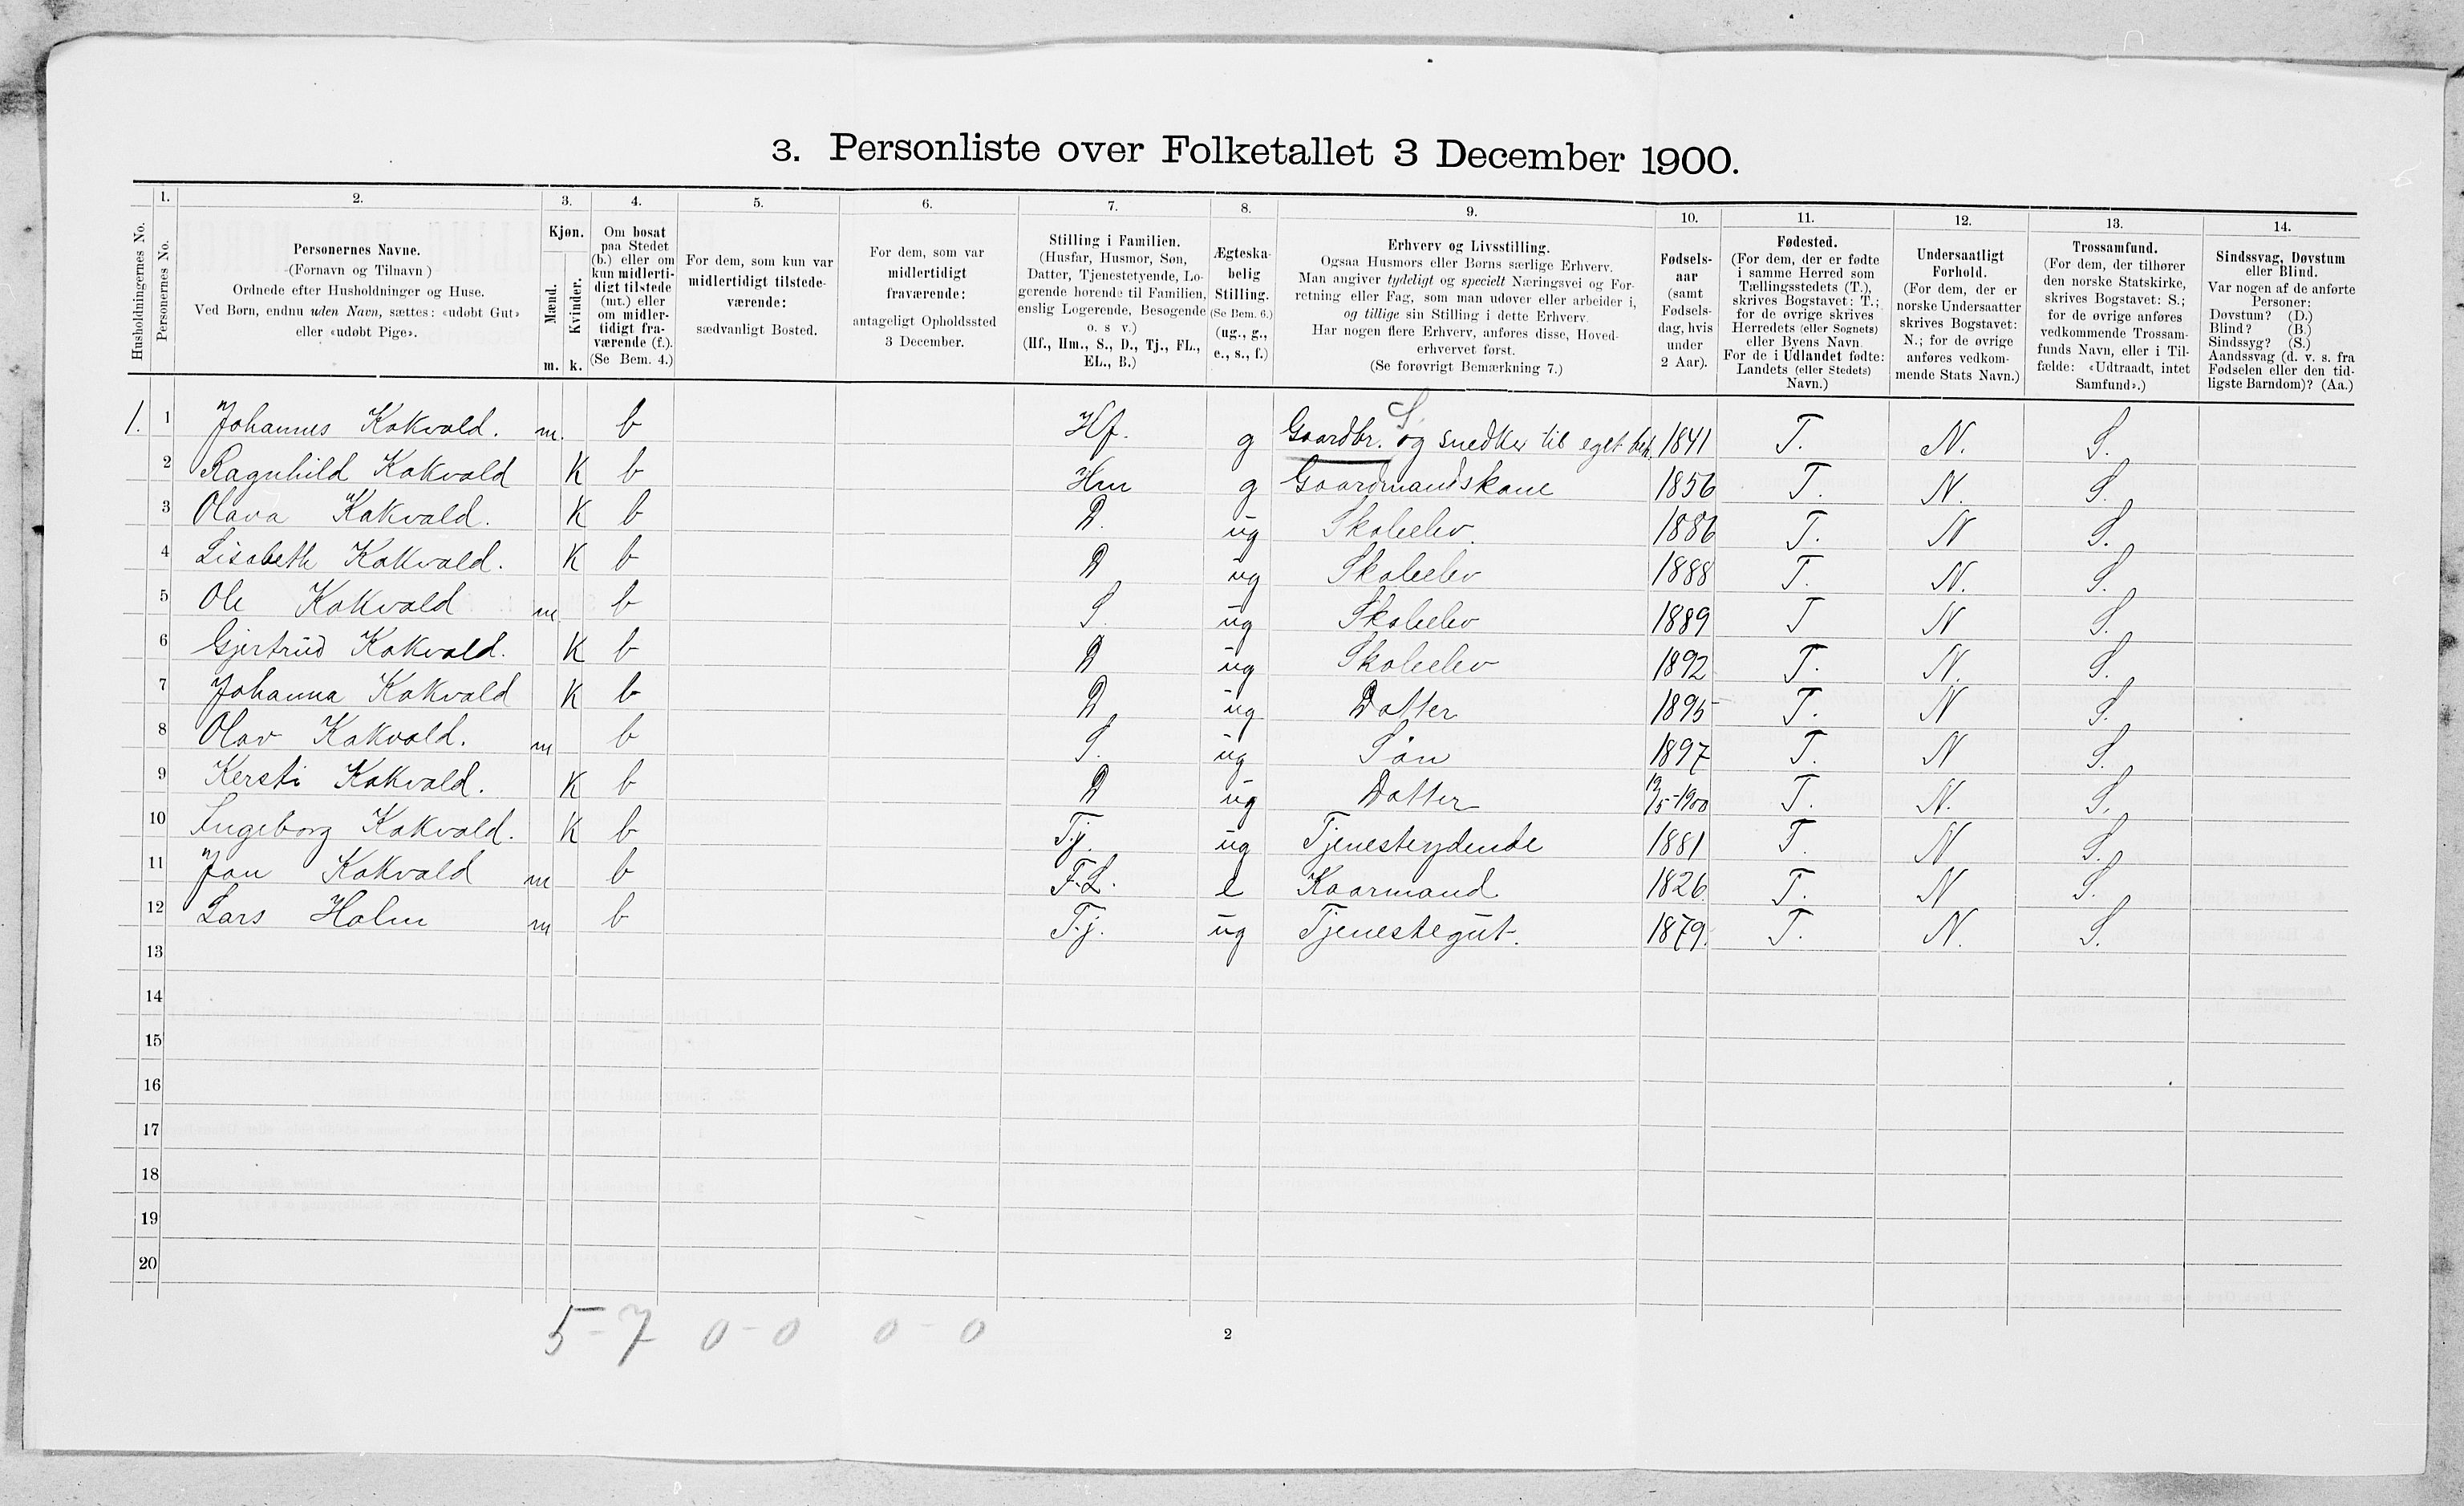 3. Personliste over Folketallet 3 December 1900.
Husholdningernes No.
1.
Personernes No.
2.
Personernes Navne.
(Fornavn og Tilnavn)
Ordnede efter Husholdninger og Huse.
Ved Børn, endnu uden Navn, sættes: «udøbt Gut»
eller «udøbt Pige».
3.
Kjøn.
Mænd.
Kvinder.
m. k.
4.
Om bosat
paa Stedet
(b.) eller om
kun midlerti-
digt tilstede
(mt.) eller
om midler-
tidigt fra-
værende (f.).
(Se Bem. 4.)
5.
For dem, som kun var
midlertidigt tilstede-
værende:
sædvanligt Bosted.
6.
For dem, som var
midlertidigt
fraværende:
antageligt Opholdssted
3 December.
7.
Stilling i Familien.
(Husfar, Husmor, Søn,
Datter, Tjenestetyende, Lo-
gerende hørende til Familien,
enslig Logerende, Besøgende
o. s v.)
(Hf., Hm., S., D., Tj., FL.,
EL., B.)
8.
Ægteska-
belig
Stilling.
(Se Bem. 6.)
(ug., g.,
e., s., f.)
9.
Erhverv og Livsstilling.
Ogsaa Husmors eller Børns særlige Erhverv.
Man angiver tydeligt og specielt Næringsvei og For-
retning eller Fag, som man udøver eller arbeider i,
og tillige sin Stilling i dette Erhverv.
Har nogen flere Erhverv, anføres disse, Hoved-
erhvervet først.
(Se forøvrigt Bemærkning 7.)
10.
Fødsels-
aar
(samt
Fødsels-
dag, hvis
under
2 Aar).
11.
Fødested.
(For dem, der er fødte
i samme Herred som
Tællingsstedets (T.),
skrives Bogstavet: T.;
for de øvrige skrives
Herredets (eller Sognets)
eller Byens Navn.
For de i Udlandet fødte:
Landets (eller Stedets)
Navn.)
12.
Undersaatligt
Forhold.
(For dem, der er
norske Undersaatter
skrives Bogstavet:
N.; for de øvrige
anføres vedkom-
mende Stats Navn.)
13.
Trossamfund.
(For dem, der tilhører
den norske Statskirke,
skrives Bogstavet: S.;
for de øvrige anføres
vedkommende Trossam-
funds Navn, eller i Til-
fælde: «Udtraadt, intet
Samfund».)
14.
Sindssvag, Døvstum
eller Blind.
Var nogen af de anførte
Personer:
Døvstum? (D.)
Blind? (B.)
Sindssyg? (S.)
Aandssvag (d. v. s. fra
Fødselen eller den tid-
ligste Barndom)? (Aa.)
S.
1. 1 Johannes Kokvold. m. b Hf. g Gaardbr. og snedker til eget beh. 1841 T. N. S.
2 Ragnhild Kokvold K b Hm g Gaardmandskone 1856 T. N. S.
3 Olava Kokvold. K b D. ug Skoleelev. 1886 T. N S.
4 Lisabeth Kokvold. K b D ug Skoleelev 1888 T. N. S.
5 Ole Kokvold m b S. ug Skoleelev 1889 T N S.
6 Gjertrud Kokvold. K b D ug Skoleelev 1892 T. N. S.
7 Johanna Kokvold K b D ug Datter 1895 T. N S.
8 Olav Kokvold. m b S. ug Søn 1897 T. N S.
9 Kersti Kokvold. K b D ug Datter /5-1900 T. N. S.
10 Ingeborg Kokvold. K b Tj. ug Tjenestetydende 1881 T. N S.
11 Jon Kokvold m b F.L. e Kaarmand 1826. T. N S.
12 Lars Holm m b Tj. ug Tjenestegut. 1879. T. N. S.
13
14
15
16
17
18
19
20
5 - 7 0 - 0 0 - 0
2